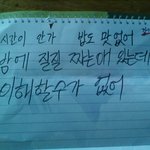 시간이 안가 밥도 맛없어
밤에 질질 짜는애 있는데
이해할수가 없어